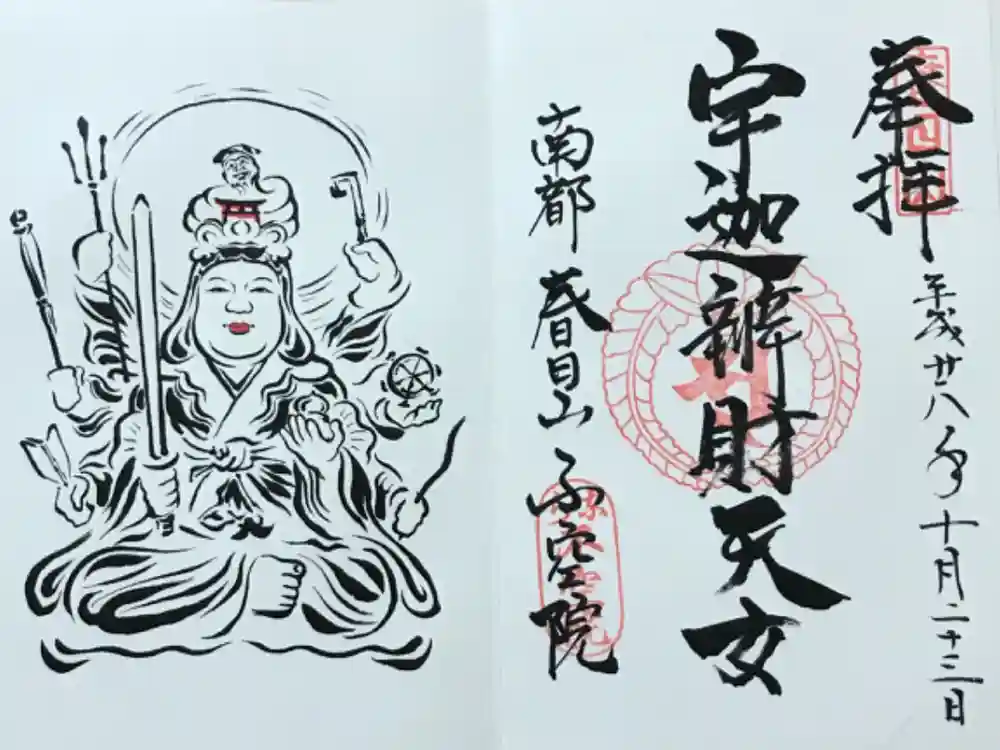 奉拝
平成廿八年十月二十三日
宇迦辯財天女
南都 春日山 不空院